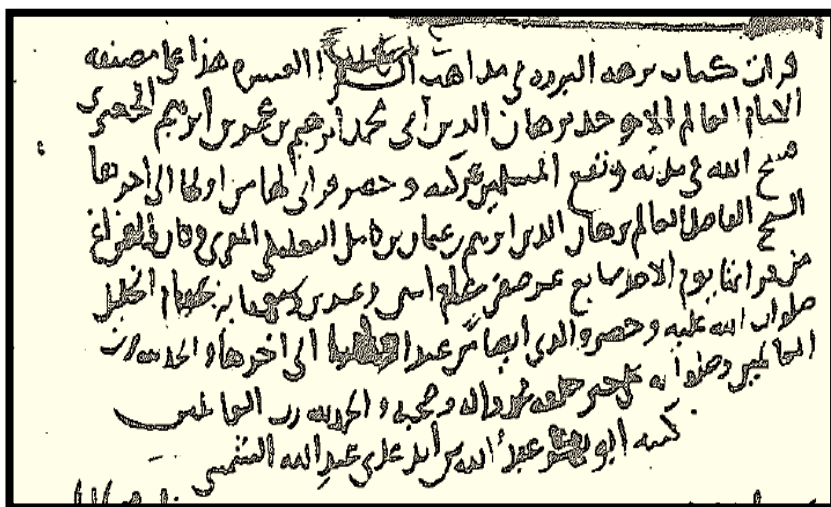 قرات كتاب نزهة البررة في مذاهب القراء العشرة هذا على مصنفه
الامام العالم الاوحد برهان الدين أبي محمد ابرهيم بن عمر بن ابرهيم الجعبري
فسح الله في مدته ونفع المسلمين ببركته وحضر قراتي لها من اولها الى اخرها
الشيخ الفاضل العالم برهان الدين ابرهيم بن كامل المقري وكان الفراغ
من قراتها يوم الاحد سابع عشر صفر عام اثني وعشرين بمقام الخليل
صلوات الله عليه وحضر والدي ايضا من الى اخرها والحمد لله رب
العالمين وصلواته على خير خلقه محمد واله وصحبه والحمد لله رب العالمين
كتبه ابو عبد الله بن علي عبد الله